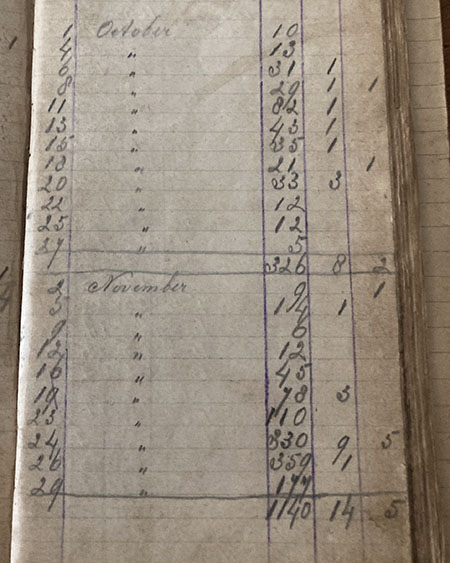 1 October 10
4 " 13
6 " 31 1
8 " 29 1 1
11 " 82 1
13 " 43 1
15 " 35 1
18 " 21 1
20 " 33 3
22 " 12
25 " 12
27 " 5
326 8 2
2 November 9 1
5 " 14 1
9 " 6
12 " 12
16 " 45
19 " 78 3
23 " 110
24 " 330 9 5
26 " 359 1
29 " 177
1140 14 5